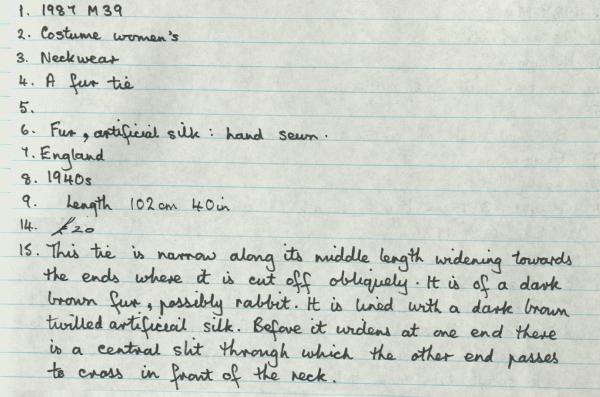 1. 1987 M39
2. Costume women's
3. Neckwear
4. A fur tie
5.
6. Fur, artificial silk: hand sewn.
7. England
8. 1940s
9. Length 102cm 40in
14. £20
15. This tie is narrow along its middle length widening towards
the ends where it is cut off obliquely. It is of a dark
brown fur, possibly rabbit. It is lined with a dark brown
twilled artificial silk. Before it widens at one end there
is a central slit through which the other end passes
to cross in front of the neck.